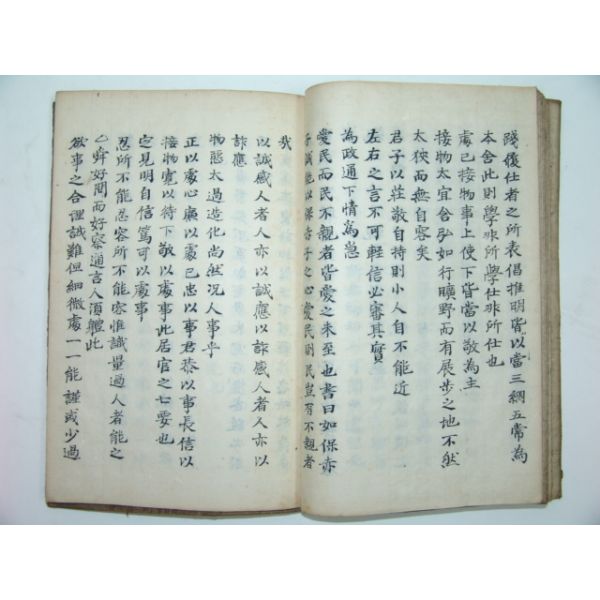 踐履仕者之所表倡推明皆以當三綱五常為
本舍此則學非所學仕非所仕也
處己接物事上使下皆當以敬為主
接物太宜含弘如行曠野而有展步之地不然
太狹而無自容矣
君子以莊敬自持則小人自不能近
左右之言不可輕信必審其實
為政通下情為急
愛民而民不親者皆愛之未至也書曰如保赤
子誠能以保赤子之心愛民則民豈有不親者
哉
以誠感人者人亦以誠應以詐感人者人亦以
詐應
物態太過造化尚然況人事乎
正以處心廉以處己忠以事君恭以事長信以
接物寬以待下敬以處事此居官之七要也
定見明自信篤可以處事
忍所不能忍容所不能容惟識量過人者能之
舜好問而好察邇言人須體此
做事之合理誠難但細微處一一能謹或少過